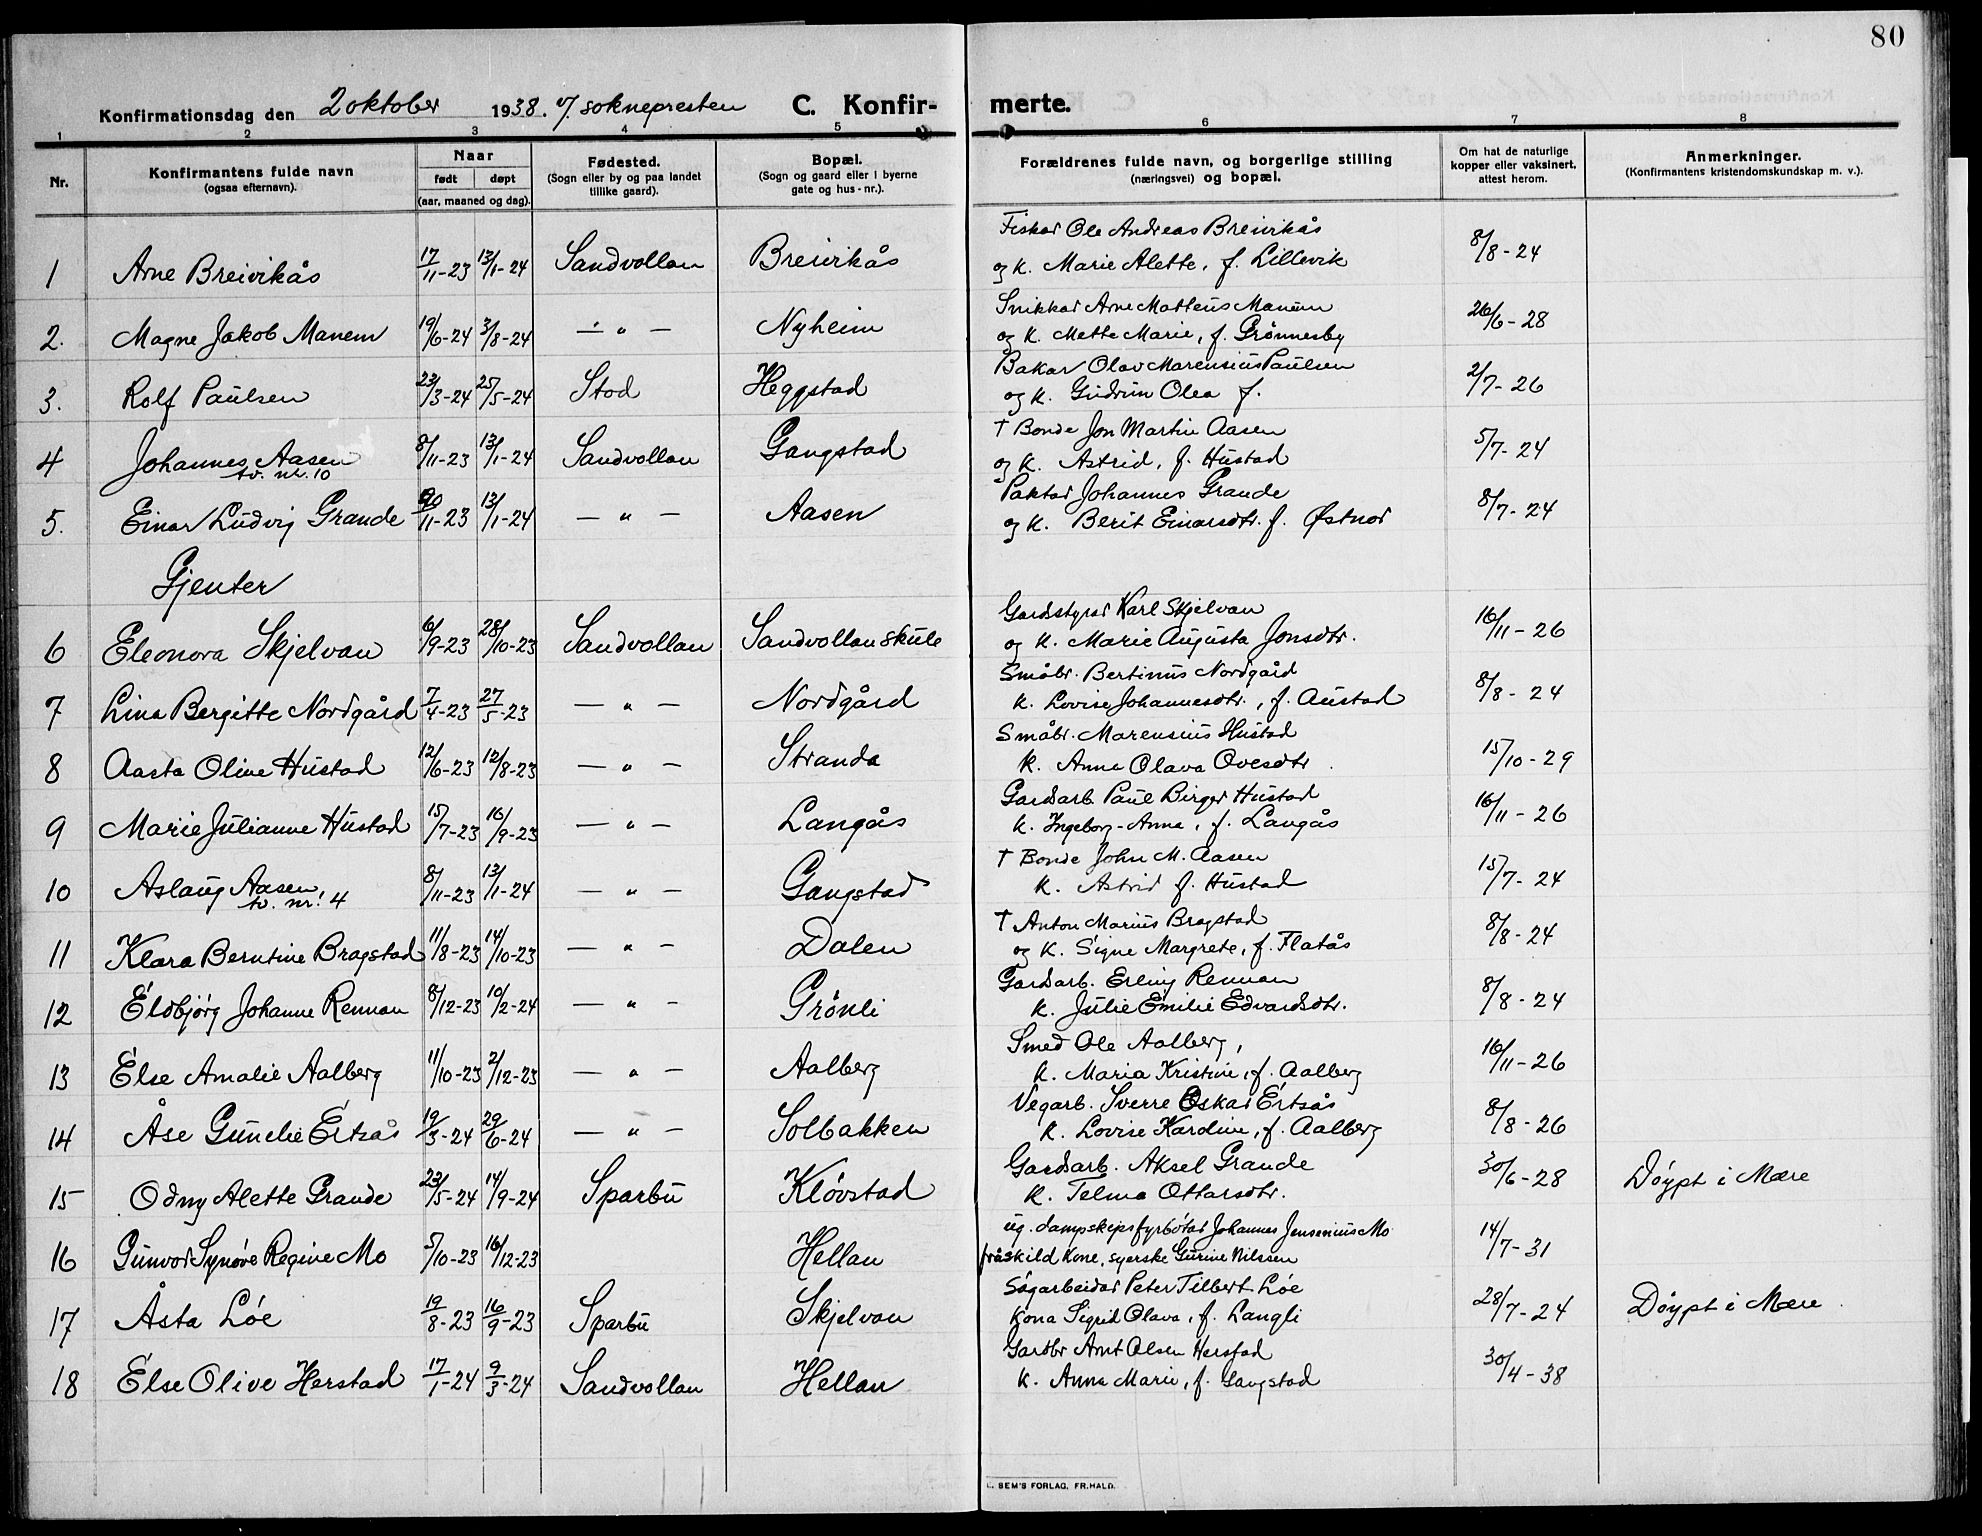 80
Konfirmationsdag den 2 oktober 1938. v/. soknepresten C. Konfir-
merte.
1 2 3 4 5 6 7 8
Nr.
Konfirmantens fulde navn
(ogsaa efternavn).
Naar
født døpt
(aar, maaned og dag).
Fødested.
(Sogn eller by og paa landet
tillike gaard).
Bopæl.
(Sogn og gaard eller i byerne
gate og hus-nr.).
Forældrenes fulde navn, og borgerlige stilling
(næringsvei) og bopæl.
Om hat de naturlige
kopper eller vaksinert,
attest herom.
Anmerkninger.
(Konfirmantens kristendomskundskap m. v.).
Fiskar Ole Andreas Breivikås
1 Arne Breivikås 17/11-23 13/1-24 Sandvollan Breivikås og k. Marie Alette, f. Lillevik 8/8-24
Snikkar Arne Matteus Manem
2. Magne Jakob Manem 19/6-24 3/8-24 — " — Nyheim og k. Mette Marie, f. Grönnesby 26/6-28
Bakar Olav Marensius Paulsen
3. Rolf Paulsen 23/3-24 25/5-24 Stod Heggstad og k. Gudrun Olea f. 2/7-26
† Bonde Jon Martin Aasen
4 Johannes Aasen 8/11-23 13/1-24 Sandvollan Gangstad og k. Astrid, f. Hustad 5/7-24
tv. nr. 10
Paktar Johannes Grande
5. Einar Ludvig Grande /11-23 13/1-24 — " — Aasen og k. Berit Einarsdtr. f. Østnor 8/7-24
Gjenter
Gardstyrar Karl Skjelvan
6 Eleonora Skjelvan 6/9-23 28/10-23 Sandvollan Sandvollan skule og k. Marie Augusta Jonsdtr. 16/11-26
Småbr. Bertinus Nordgård
7 Lina Bergitte Nordgård 7/4-23 27/5-23 — " — Nordgård k. Lovise Johannesdtr., f. Austad 8/8-24
Småbr. Marensius Hustad
8 Aasta Olive Hustad 12/6-23 12/8-23 — " — Stranda k. Anna Olava Ovesdtr 15/10-29
Gardsarb. Paul Birger Hustad
9 Marie Julianne Hustad 15/7-23 16/9-23 — " — Langås k. Ingeborg-Anna, f. Langås 16/11-26
† Bonde John M. Aasen
10 Aslaug Aasen, 8/11-23 13/1-24 — " — Gangstad k. Astrid f. Hustad 15/7-24
tv. nr. 4
† Anton Marius Bragstad
11 Klara Berntine Bragstad 11/8-23 14/10-23 — " — Dalen og k. Signe Margrete, f. Flatås 8/8-24
Gardsarb. Erling Rennan
12 Eldbjörg Johanne Rennan 8/12-23 10/2-24 — " — Grönli k. Julie Emilie Edvardsdtr. 8/8-24
Smed Ole Aalberg,
13 Else Amalie Aalberg 11/10-23 2/12-23 — " — Aalberg k. Maria Kristine, f. Aalberg 16/11-26
Vegarb. Sverre Oskar Ertsås
14 Åse Gunelie Ertsås 19/3-24 29/6-24 — " — Solbakken k. Lovise Kardine, f. Aalberg 8/8-26
Gardsarb. Aksel Grande
15 Odny Alette Grande 23/5-24 14/9-24 Sparbu Klövstad k. Telma Ottarsdtr. 30/6-28 Döypt i Mære
ug. dampskipsfyrbötar Johannes Jensenius Mo
16 Gunvor Synöve Regine Mo 5/10-23 16/12-23 Hellan fråskild kone, syerske Gurine Nilssen 14/7-31
Sagarbeidar Peter Tilbert Löe
17 Åsta Löe 19/8-23 16/9-23 Sparbu Skjelvan Kona Sigrid Olava, f. Langli 28/7-24 Döypt i Mære
Gardbr Arnt Olsen Herstad
18 Else Olive Herstad 17/1-24 9/3-24 Sandvollan Hellan k. Anna Marie, f. Gangstad 30/4-38
SEM'S FORLAG, FR.HALD.